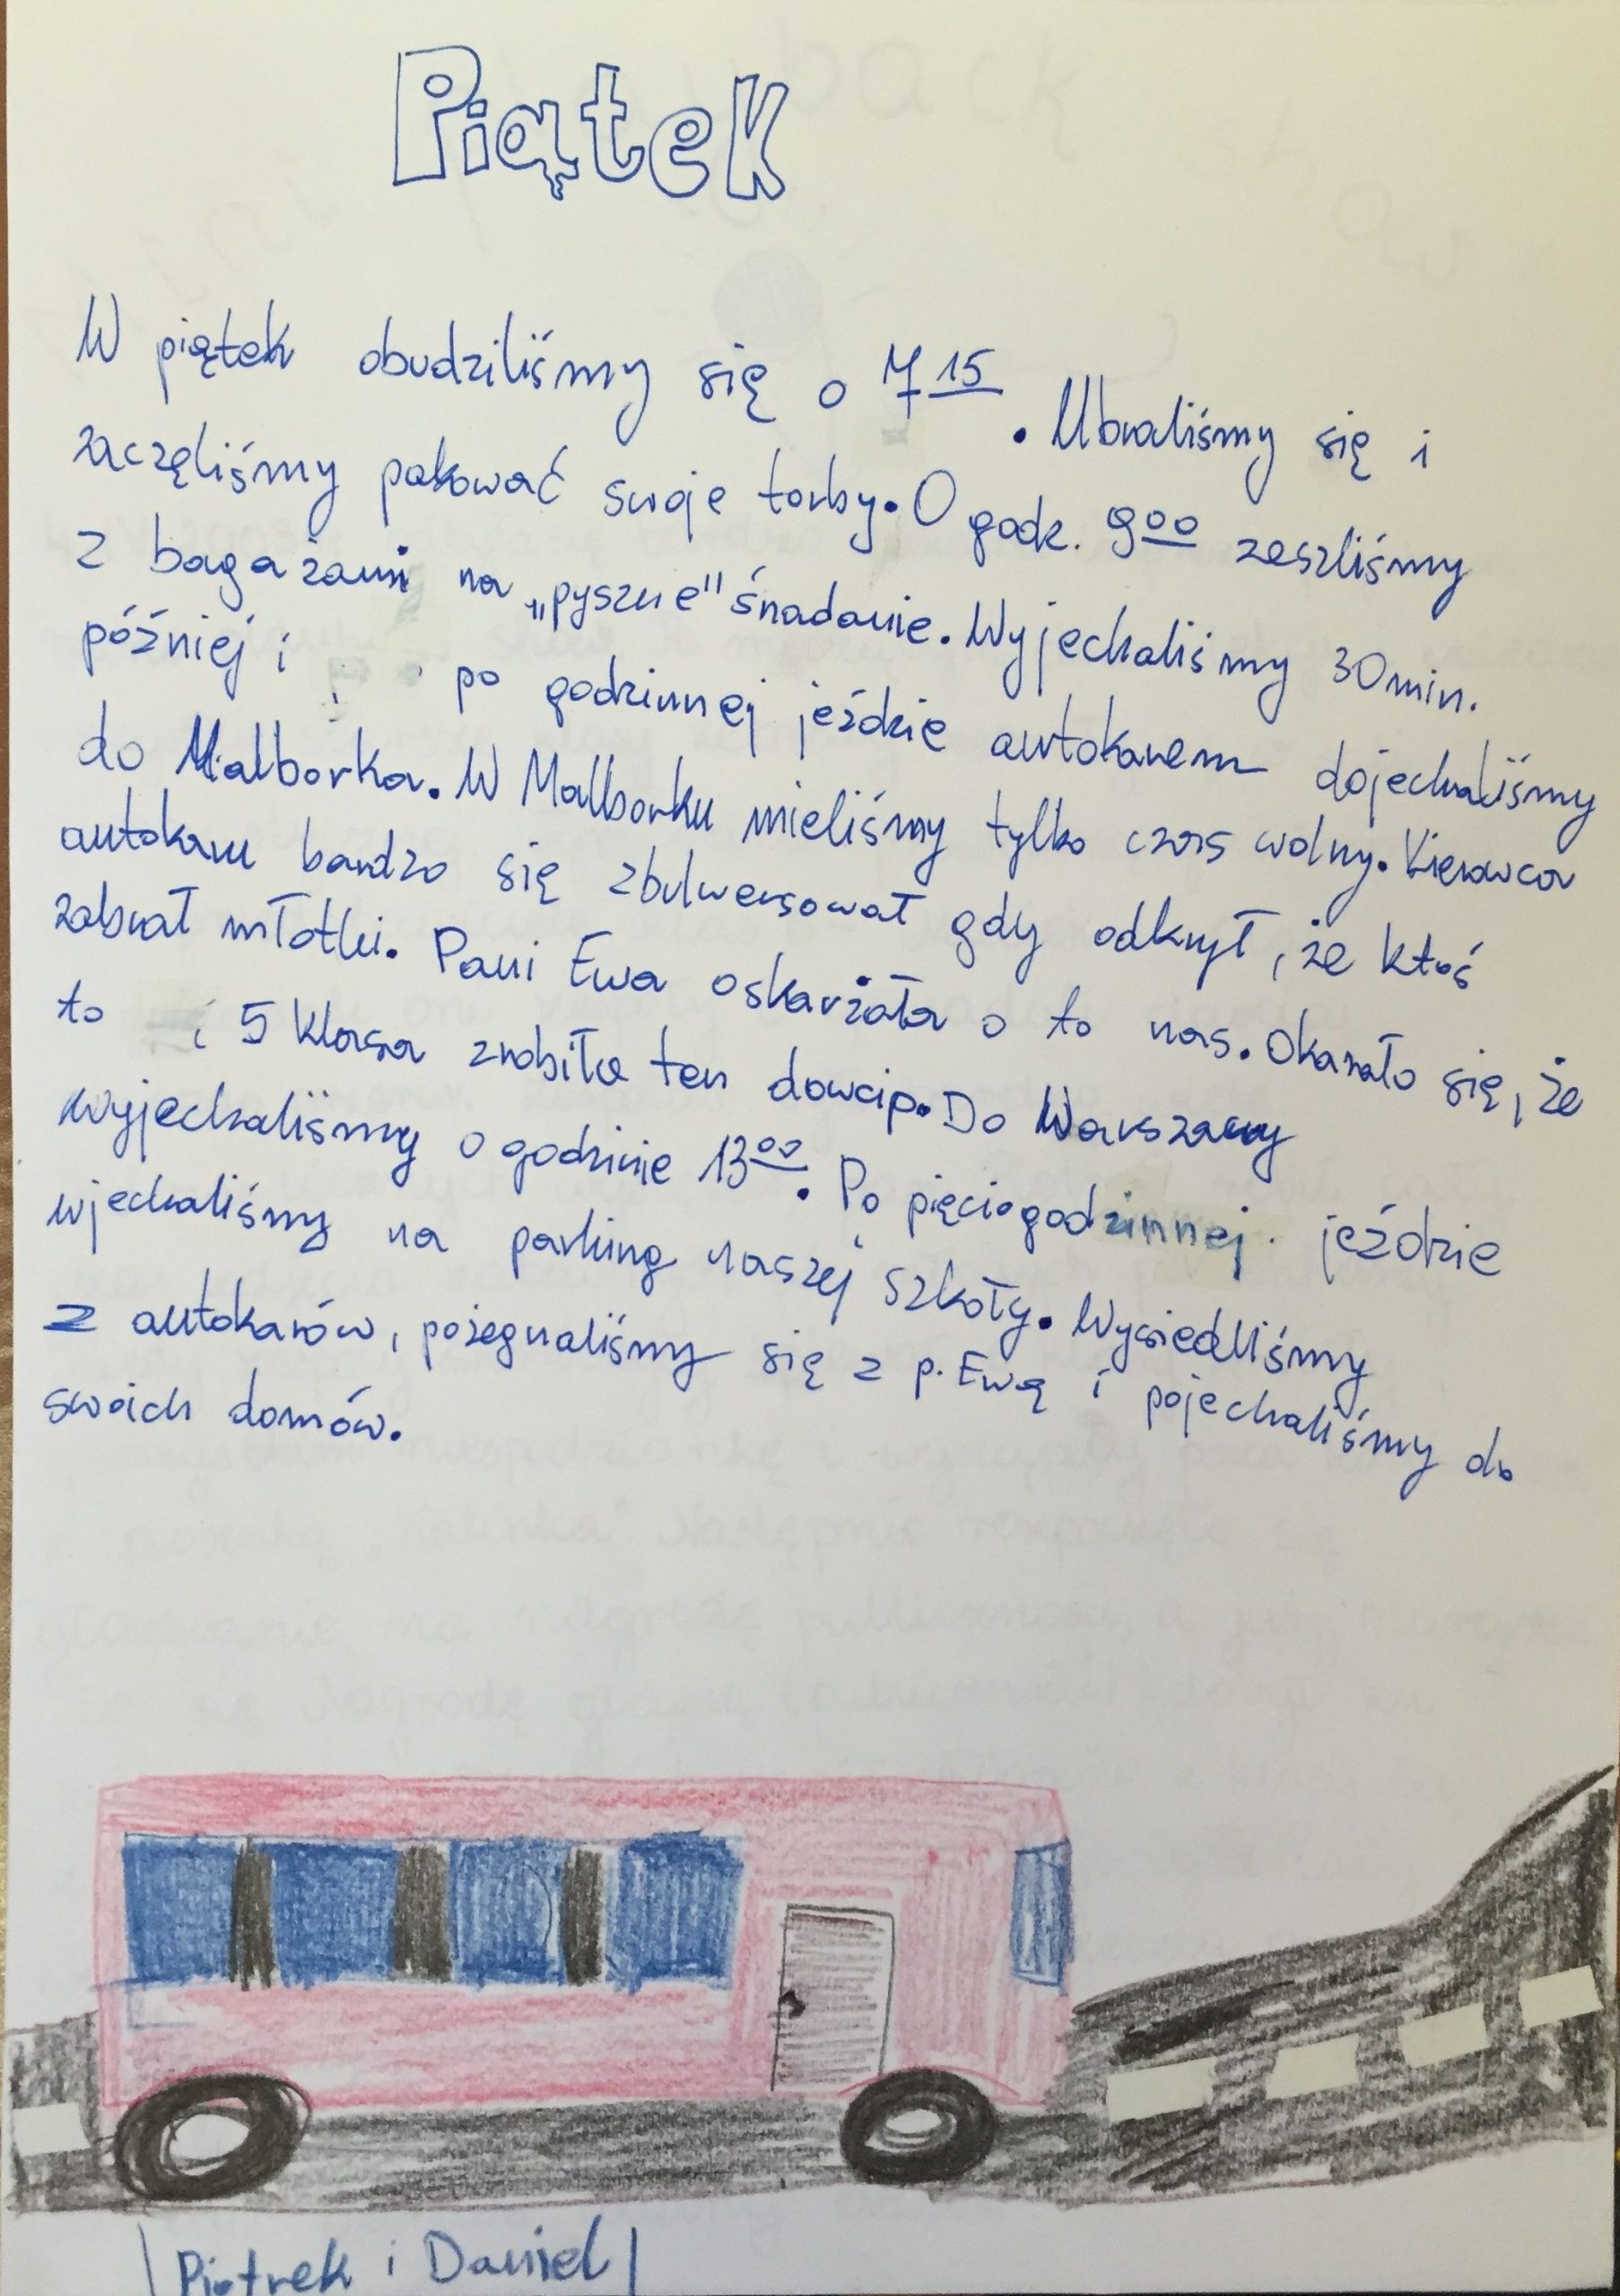 Piątek
W piątek obudziliśmy się o 7 15. Ubraliśmy się i
zaczęliśmy pakować swoje torby. O godz. 9 00 zeszliśmy
z bagażami na „pyszne" śnadanie. Wyjechaliśmy 30 min.
później i po godzinnej jeździe autokarem dojechaliśmy
do Malborka. W Malborku mieliśmy tylko czas wolny. Kierowca
autokaru bardzo się zbulwersował gdy odkrył, że ktoś
zabrał młotki. Pani Ewa oskarżała o to nas. Okazało się, że
to i 5 klasa zrobiła ten dowcip. Do Warszawy
wyjechaliśmy o godzinie 13 00. Po pięciogodzinnej jeździe
wjechaliśmy na parking naszej szkoły. Wysiedliśmy
z autokarów, pożegnaliśmy się z p. Ewą i pojechaliśmy do
swoich domów.
Piotrek i Daniel